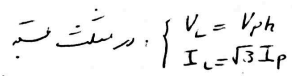 در مثلث بسته . { V_L = V_ph
I_L = √3 I_P